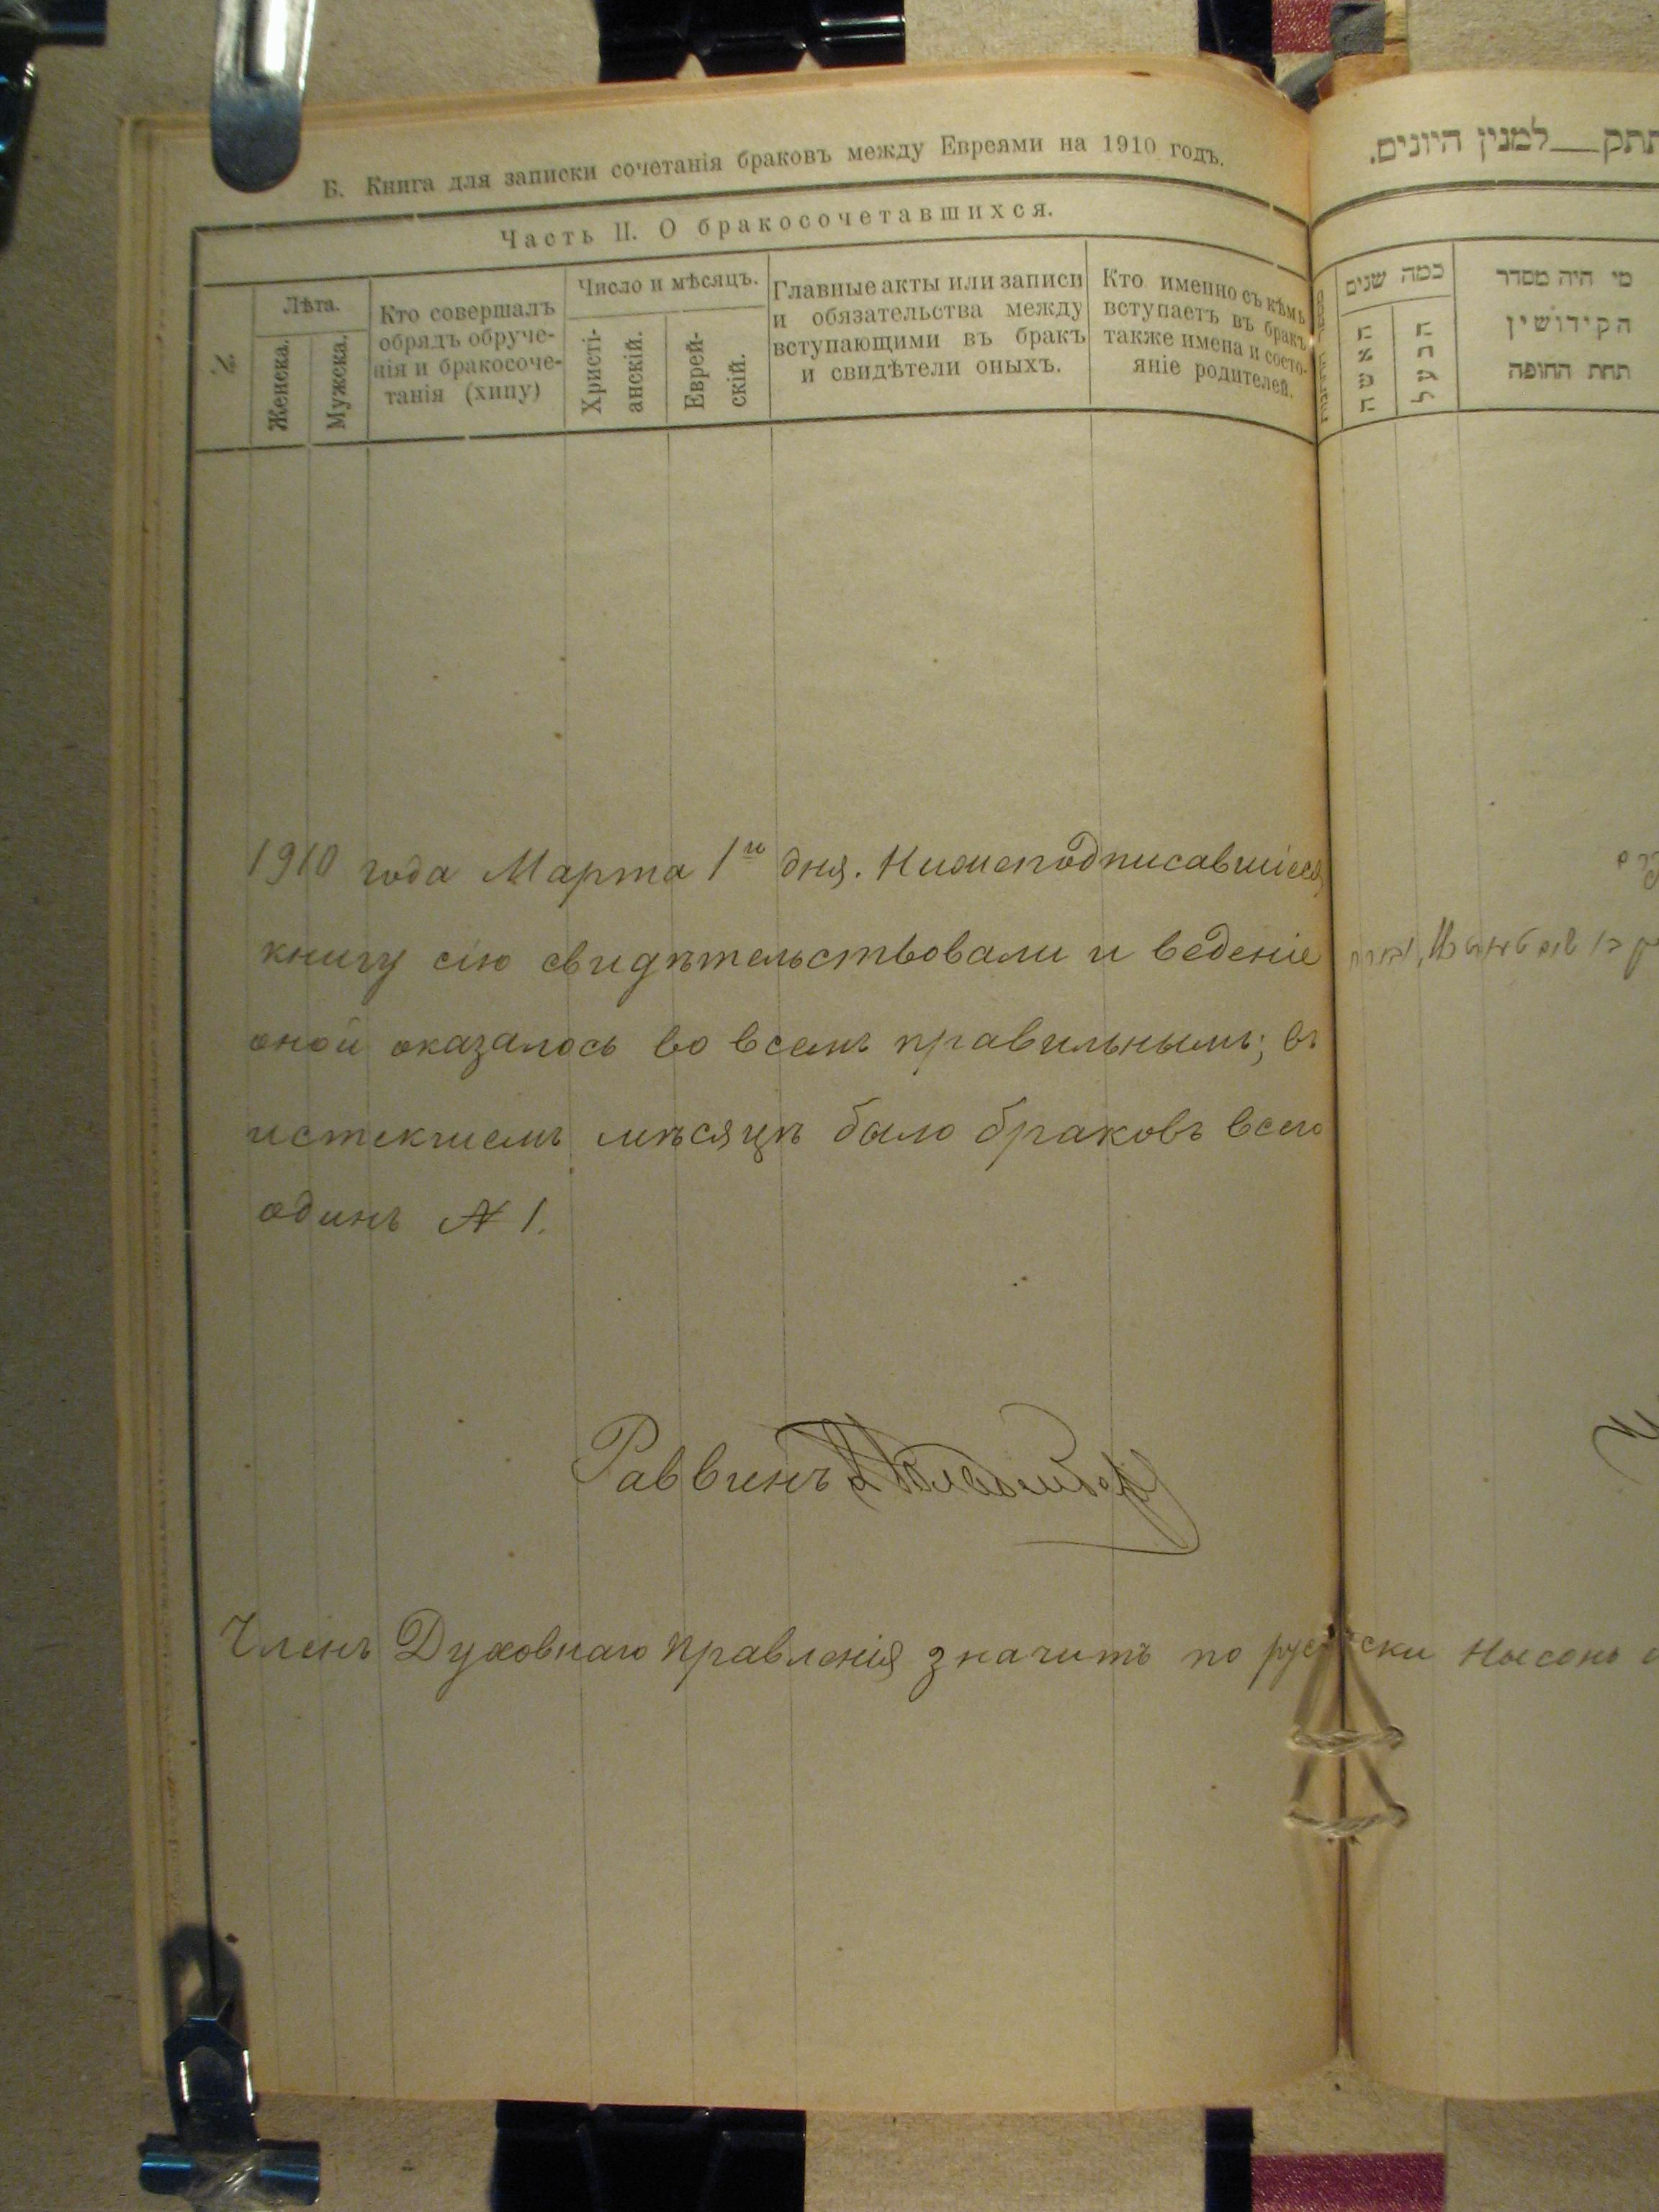 Б. Книга для записки сочетанія браковъ между Евреями на 1910 годъ.
Часть II. О бракосочетавшихся.
№
Лѣта.
Женска.
Мужска.
Кто совершалъ
обрядъ обруче-
нія и бракосоче-
танія (хипу)
Число и мѣсяцъ.
Христі-
анскій.
Еврей-
скій.
Главные акты или записи
и обязательства между
вступающими въ бракъ
и свидѣтели оныхъ.
Кто именно съ кѣмъ
вступаетъ въ бракъ
также имена и состо-
яніе родителей.
1910 года Марта 1го дня. Нижеподписавшіеся
книгу сію свидѣтельствовали и веденіе
оной оказалось во всемъ правильнымъ; въ
истекшемъ мѣсяцѣ было браковъ всего
одинъ № 1.
Раввинъ
Членъ Духовнаго Правленія значитъ по русски Нысонъ
למנין היונים.
כמה שנים
האשה
הבעל
מי היה מסדר
הקידושין
תחת החופה